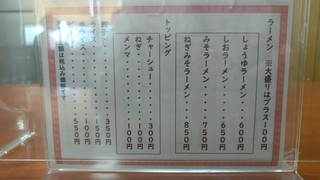 ラーメン ※大盛りはプラス100円
しょうゆラーメン・・・・600円
しおラーメン・・・・・・650円
みそラーメン・・・・・・750円
ねぎみそラーメン・・・・850円
トッピング
チャーシュー・・・・300円
ねぎ・・・・・・・・100円
メンマ・・・・・・・100円
350円
ライス・・・・・150円
100円
550円
額は税込み価格です